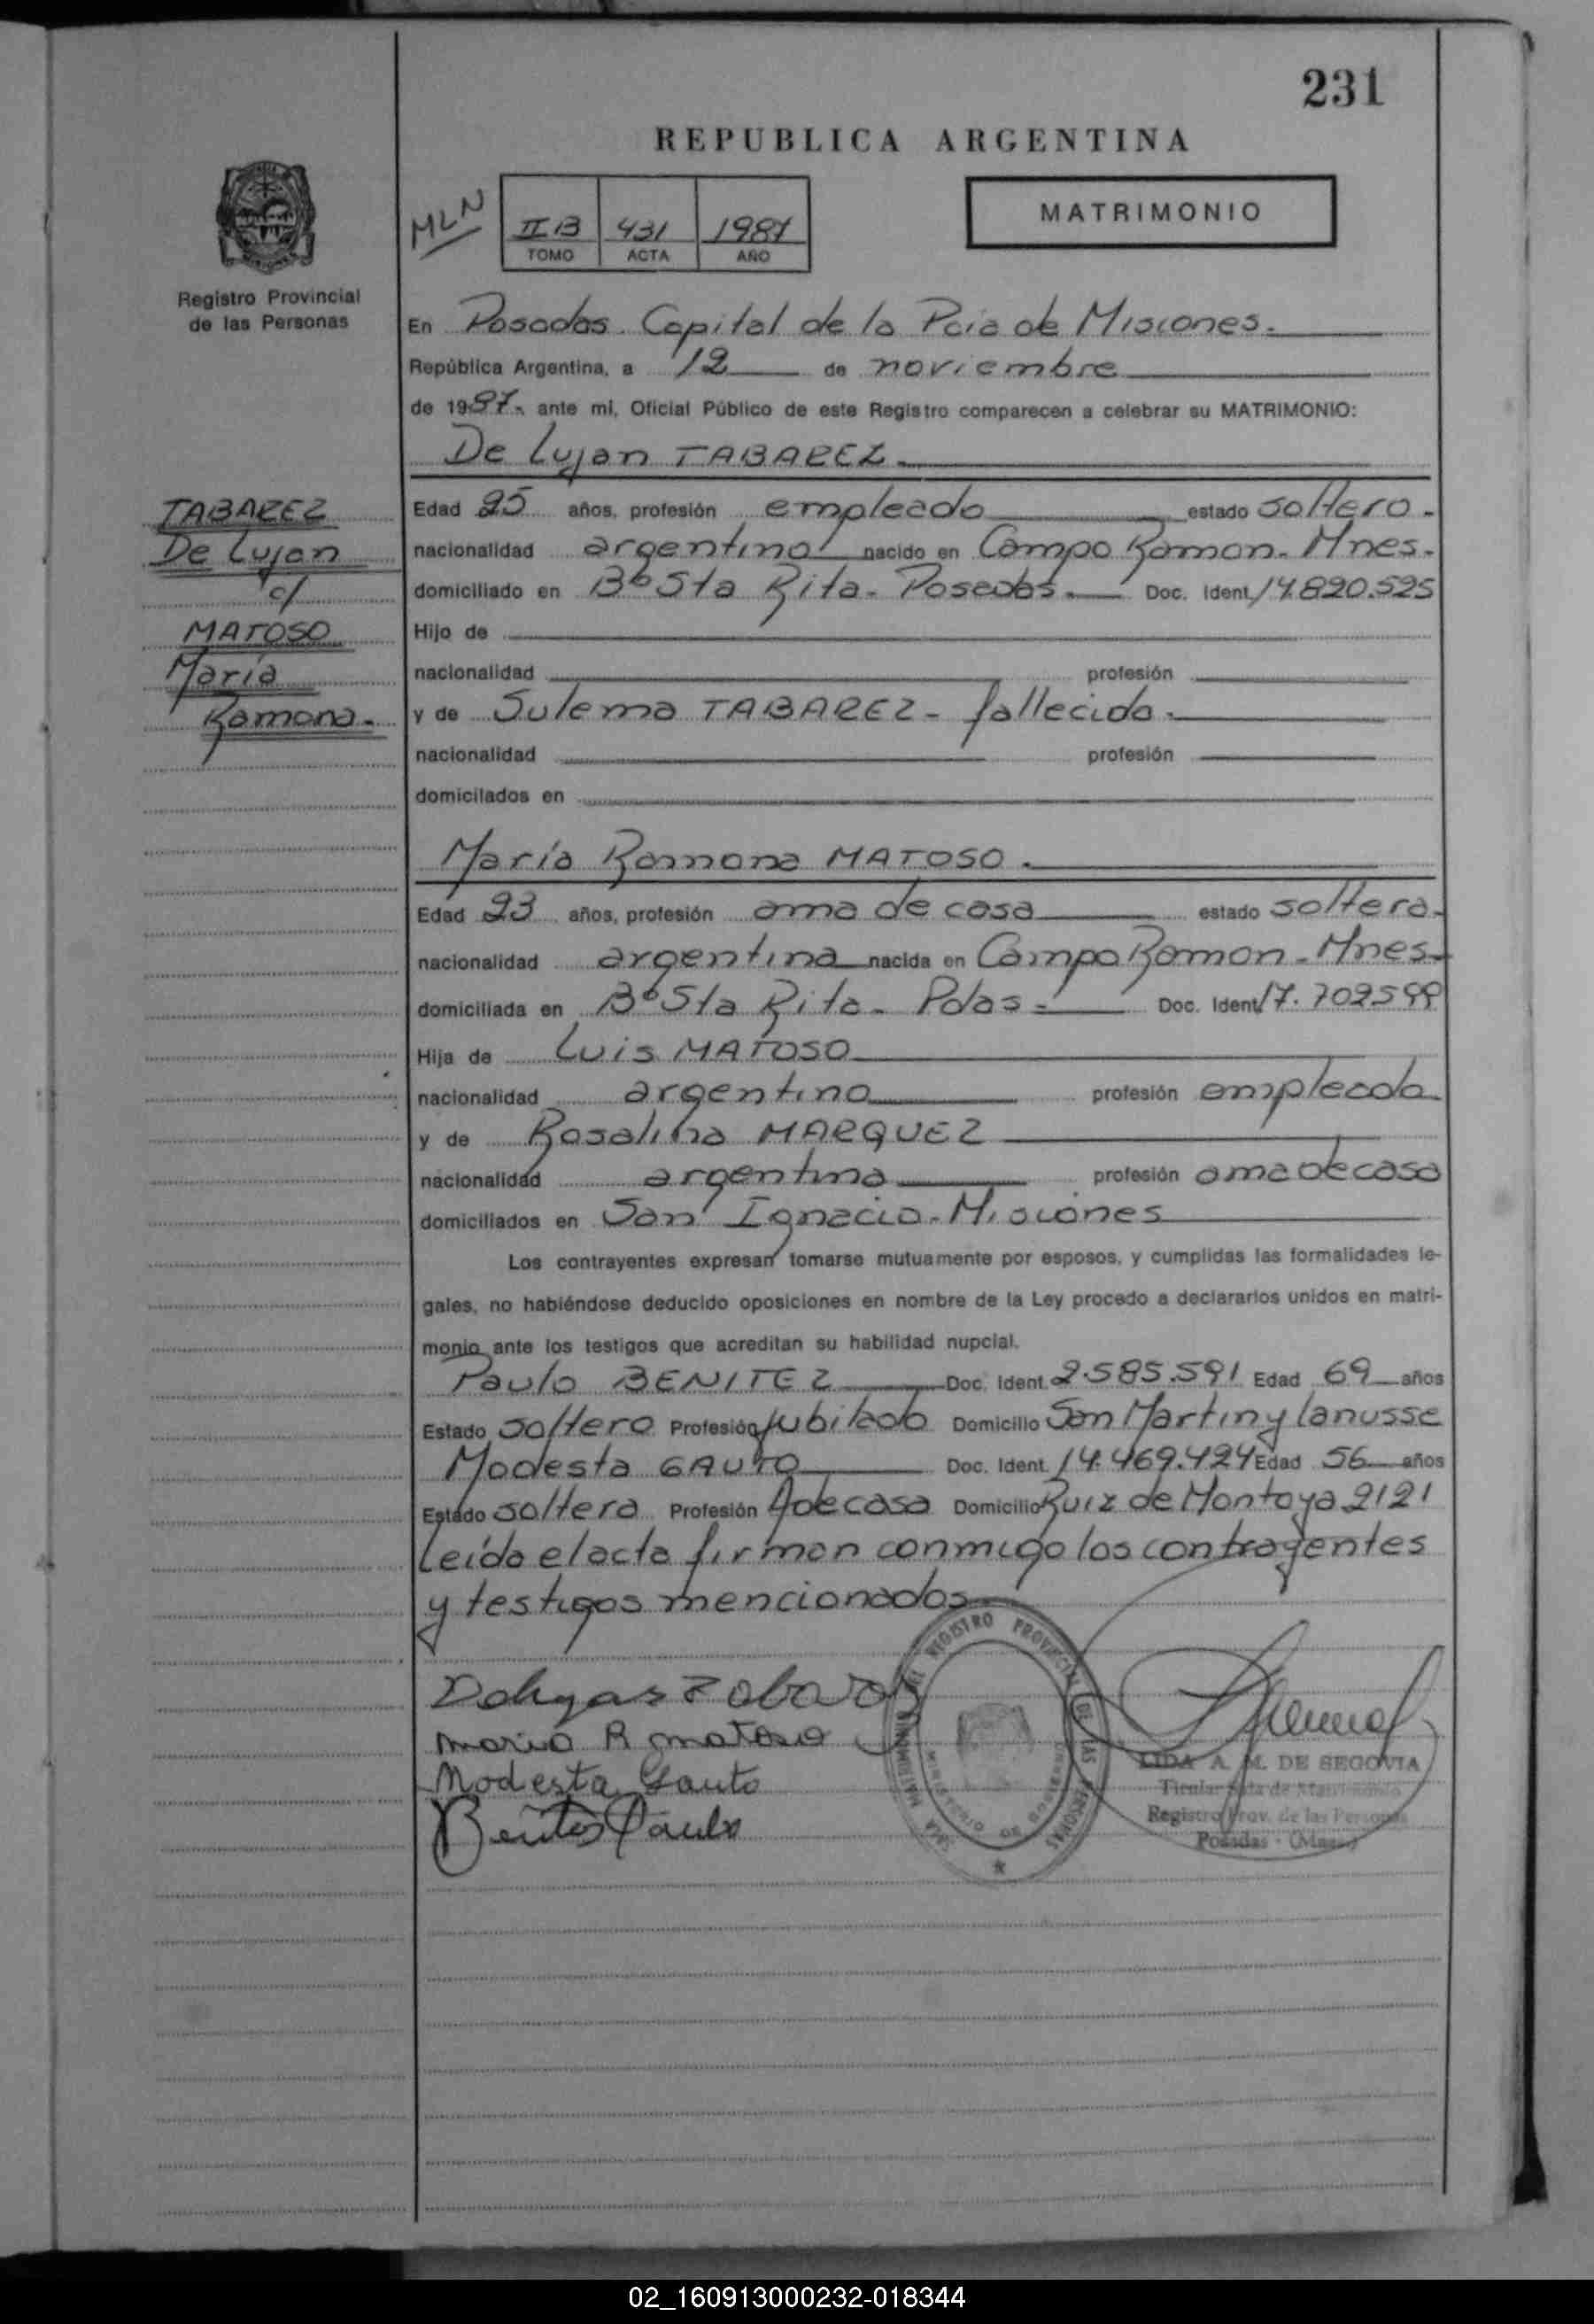 231
REPUBLICA ARGENTINA
MLN
II B 431 1987
TOMO ACTA AÑO
MATRIMONIO
Registro Provincial
de las Personas
En Posadas. Capital de la Pcia de Misiones.
República Argentina, a 12 de noviembre
de 1987. ante mi, Oficial Público de este Registro comparecen a celebrar su MATRIMONIO:
De Lujan TABAREZ.
TABAREZ
De Lujan
c/
MATOSO
María
Ramona.
Edad 25 años, profesión empleado estado soltero.
nacionalidad argentino nacido en Campo Ramon. Mnes.
domiciliado en B° Sta Rita. Posadas. Doc. Ident. 14.820.525
Hijo de
nacionalidad profesión
y de Sulema TABAREZ - fallecida.
nacionalidad profesión
domicilados en
María Ramona MATOSO.
Edad 23 años, profesión ama de casa estado soltera.
nacionalidad argentina nacida en Campo Ramon. Mnes.
domiciliada en B° Sta Rita. Pdas. Doc. Ident. 17.702599
Hija de Luis MATOSO
nacionalidad argentino profesión empleado
y de Rosalina MARQUEZ
nacionalidad argentina profesión ama de casa
domiciliados en San Ignacio. Misiones
Los contrayentes expresan tomarse mutuamente por esposos, y cumplidas las formalidades le-
gales, no habiéndose deducido oposiciones en nombre de la Ley procedo a declararlos unidos en matri-
monio ante los testigos que acreditan su habilidad nupcial.
Paulo BENITEZ Doc. Ident. 2.585.591 Edad 69 años
Estado soltero Profesión jubilado Domicilio San Martin y Lanusse
Modesta GAUTO Doc. Ident. 14.469.424 Edad 56 años
Estado soltera Profesión A de casa Domicilio Ruiz de Montoya 2121
Leída el acta firman conmigo los contrayentes
y testigos mencionados
Maria R matoso
Modesta Gauto
Benites Paulo
REGISTRO PROVINCIAL DE LAS PERSONAS
LIDA A. M. DE SEGOVIA
Titular Sala de Matrimonio
Registro Prov. de las Personas
Posadas - (Mnes.)
02_160913000232-018344